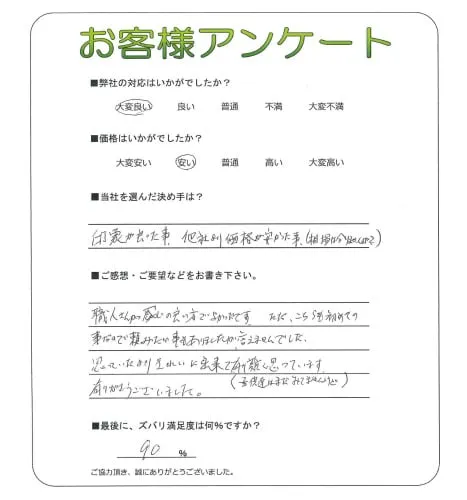 お客様アンケート
■弊社の対応はいかがでしたか？
大変良い 良い 普通 不満 大変不満
■価格はいかがでしたか？
大変安い 安い 普通 高い 大変高い
■当社を選んだ決め手は？
印象が良かった事 他社より価格が安かった事
■ご感想・ご要望などをお書き下さい。
職人さんが感じの良い方でよかったです ただ、こちらも初めての
事なので頼みたい事もありましたが言えませんでした。
思っていたよりきれいに出来て有り難く思っています
ありがとうございました。
■最後に、ズバリ満足度は何％ですか？
90 ％
ご協力頂き、誠にありがとうございました。